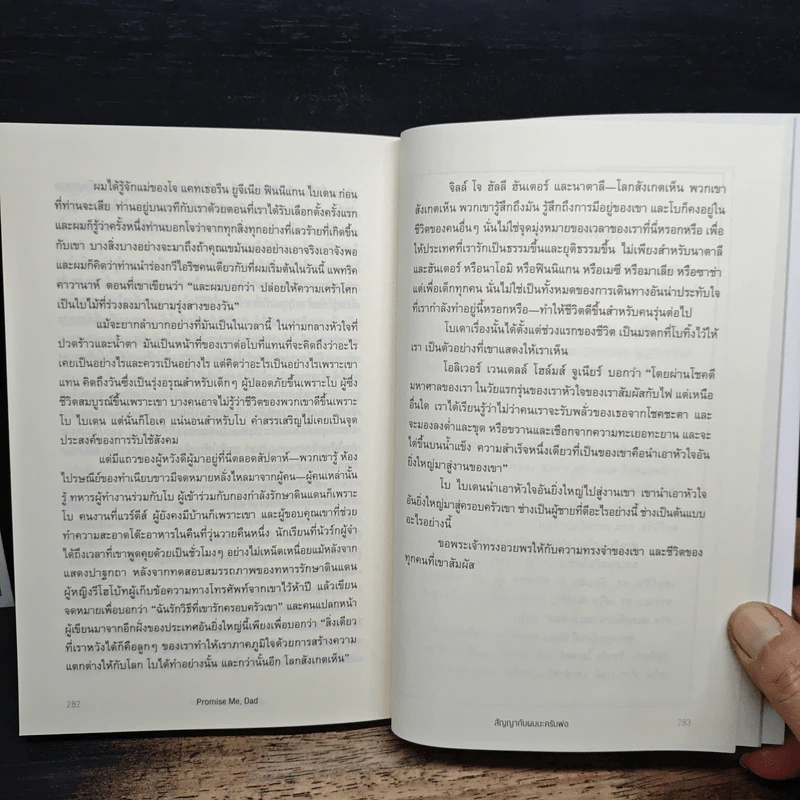 ผมได้รู้จักแม่ของโจ แคทเธอรีน ยูจีเนีย ฟินนีแกน ไบเดน ก่อน
ที่ท่านจะเสีย ท่านอยู่บนเวทีกับเราด้วยตอนที่เราได้รับเลือกตั้งครั้งแรก
และผมก็รู้ว่าครั้งหนึ่งท่านบอกใจว่าจากทุกสิ่งทุกอย่างที่เลวร้ายที่เกิดขึ้น
กับเขา บางสิ่งบางอย่างจะมาถึงถ้าคุณเขม้นมองอย่างเอาจริงเอาจังพอ
และผมก็คิดว่าท่านนำร่องกวีไอริชคนเดียวกับที่ผมเริ่มต้นในวันนี้ แพทริค
คาวานาห์ ตอนที่เขาเขียนว่า “และผมบอกว่า ปล่อยให้ความเศร้าโศก
เป็นใบไม้ที่ร่วงลงมาในยามรุ่งสางของวัน”
แม้จะยากลำบากอย่างที่มันเป็นในเวลานี้ ในท่ามกลางหัวใจที่
ปวดร้าวและน้ำตา มันเป็นหน้าที่ของเราต่อโบที่แทนที่จะคิดถึงว่าอะไร
เคยเป็นอย่างไรและควรเป็นอย่างไร แต่คิดว่าอะไรเป็นอย่างไรเพราะเขา
แทน คิดถึงวันซึ่งเป็นรุ่งอรุณสำหรับเด็กๆ ผู้ปลอดภัยขึ้นเพราะโบ ผู้ซึ่ง
ชีวิตสมบูรณ์ขึ้นเพราะเขา บางคนอาจไม่รู้ว่าชีวิตของพวกเขาดีขึ้นเพราะ
โบ ไบเดน แต่นั่นก็โอเค แน่นอนสำหรับโบ คำสรรเสริญไม่เคยเป็นจุด
ประสงค์ของการรับใช้สังคม
แต่มีแถวของผู้หวังดีผู้มาอยู่ที่นี่ตลอดสัปดาห์—พวกเขารู้ ห้อง
ไปรษณีย์ของทำเนียบขาวมีจดหมายหลั่งไหลมาจากผู้คน—ผู้คนเหล่านั้น
รู้ ทหารผู้ทำงานร่วมกับโบ ผู้เข้าร่วมกับกองกำลังรักษาดินแดนก็เพราะ
โบ คนงานที่แวร์ดีส์ ผู้ยังคงมีบ้านก็เพราะเขา และผู้ขอบคุณเขาที่ช่วย
ทำความสะอาดโต๊ะอาหารในคืนที่วุ่นวายคืนหนึ่ง นักเรียนที่นิวร์กผู้จำ
ได้ถึงเวลาที่เขาพูดคุยด้วยเป็นชั่วโมงๆ อย่างไม่เหน็ดเหนื่อยแม้หลังจาก
แสดงปาฐกถา หลังจากทดสอบสมรรถภาพของทหารรักษาดินแดน
ผู้หญิงรีโฮโบ้ทผู้เก็บข้อความทางโทรศัพท์จากเขาไว้ห้าปี แล้วเขียน
จดหมายเพื่อบอกว่า “ฉันรักวิธีที่เขารักครอบครัวเขา” และคนแปลกหน้า
ผู้เขียนมาจากอีกฝั่งของประเทศอันยิ่งใหญ่นี้เพียงเพื่อบอกว่า “สิ่งเดียว
ที่เราหวังได้ก็คือลูกๆ ของเราทำให้เราภาคภูมิใจด้วยการสร้างความ
แตกต่างให้กับโลก โบได้ทำอย่างนั้น และกว่านั้นอีก โลกสังเกตเห็น”
282
Promise Me, Dad
จิลล์ โจ ฮัลลี ฮันเตอร์ และนาตาลี—โลกสังเกตเห็น พวกเขา
สังเกตเห็น พวกเขารู้สึกถึงมัน รู้สึกถึงการมีอยู่ของเขา และโบก็คงอยู่ใน
ชีวิตของคนอื่นๆ นั่นไม่ใช่จุดมุ่งหมายของเวลาของเราที่นี่หรอกหรือ เพื่อ
ให้ประเทศที่เรารักเป็นธรรมขึ้นและยุติธรรมขึ้น ไม่เพียงสำหรับนาตาลี
และฮันเตอร์ หรือนาโอมิ หรือฟินนีแกน หรือเมซี หรือมาเลีย หรือซาช่า
แต่เพื่อเด็กทุกคน นั่นไม่ใช่เป็นทั้งหมดของการเดินทางอันน่าประทับใจ
ที่เรากำลังทำอยู่นี้หรอกหรือ—ทำให้ชีวิตดีขึ้นสำหรับคนรุ่นต่อไป
โบเดาเรื่องนั้นได้ตั้งแต่ช่วงแรกของชีวิต เป็นมรดกที่โบทิ้งไว้ให้
เรา เป็นตัวอย่างที่เขาแสดงให้เราเห็น
โอลิเวอร์ เวนเดลล์ โฮล์มส์ จูเนียร์ บอกว่า “โดยผ่านโชคดี
มหาศาลของเรา ในวัยแรกรุ่นของเราหัวใจของเราสัมผัสกับไฟ แต่เหนือ
อื่นใด เราได้เรียนรู้ว่าไม่ว่าคนเราจะรับพลั่วของเธอจากโชคชะตา และ
จะมองลงต่ำและขูด หรือขวานและเชือกจากความทะเยอทะยาน และจะ
ไต่ขึ้นบนน้ำแข็ง ความสำเร็จหนึ่งเดียวที่เป็นของเขาคือนำเอาหัวใจอัน
ยิ่งใหญ่มาสู่งานของเขา”
โบ ไบเดนนำเอาหัวใจอันยิ่งใหญ่ไปสู่งานเขา เขานำเอาหัวใจ
อันยิ่งใหญ่มาสู่ครอบครัวเขา ช่างเป็นผู้ชายที่ดีอะไรอย่างนี้ ช่างเป็นต้นแบบ
อะไรอย่างนี้
ขอพระเจ้าทรงอวยพรให้กับความทรงจำของเขา และชีวิตของ
ทุกคนที่เขาสัมผัส
สัญญากับผมนะครับพ่อ
283